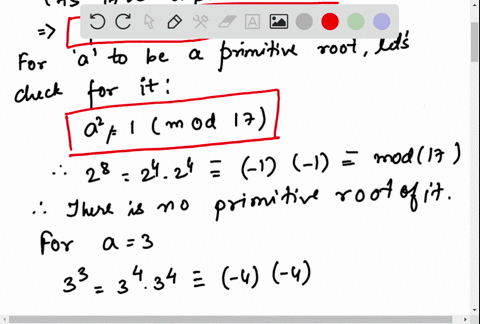 =>
For 'a' to be a primitive root, let's
check for it:
a² ≢ 1 (mod 17)
∴ 2⁸ = 2⁴.2⁴ ≡ (-1) (-1) ≡ mod(17)
∴ There is no primitive root of it.
For a = 3
3³ = 3⁴.3⁴ ≡ (-4) (-4)